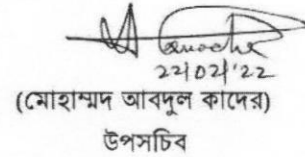 22/02/'22
(মোহাম্মদ আবদুল কাদের)
উপসচিব